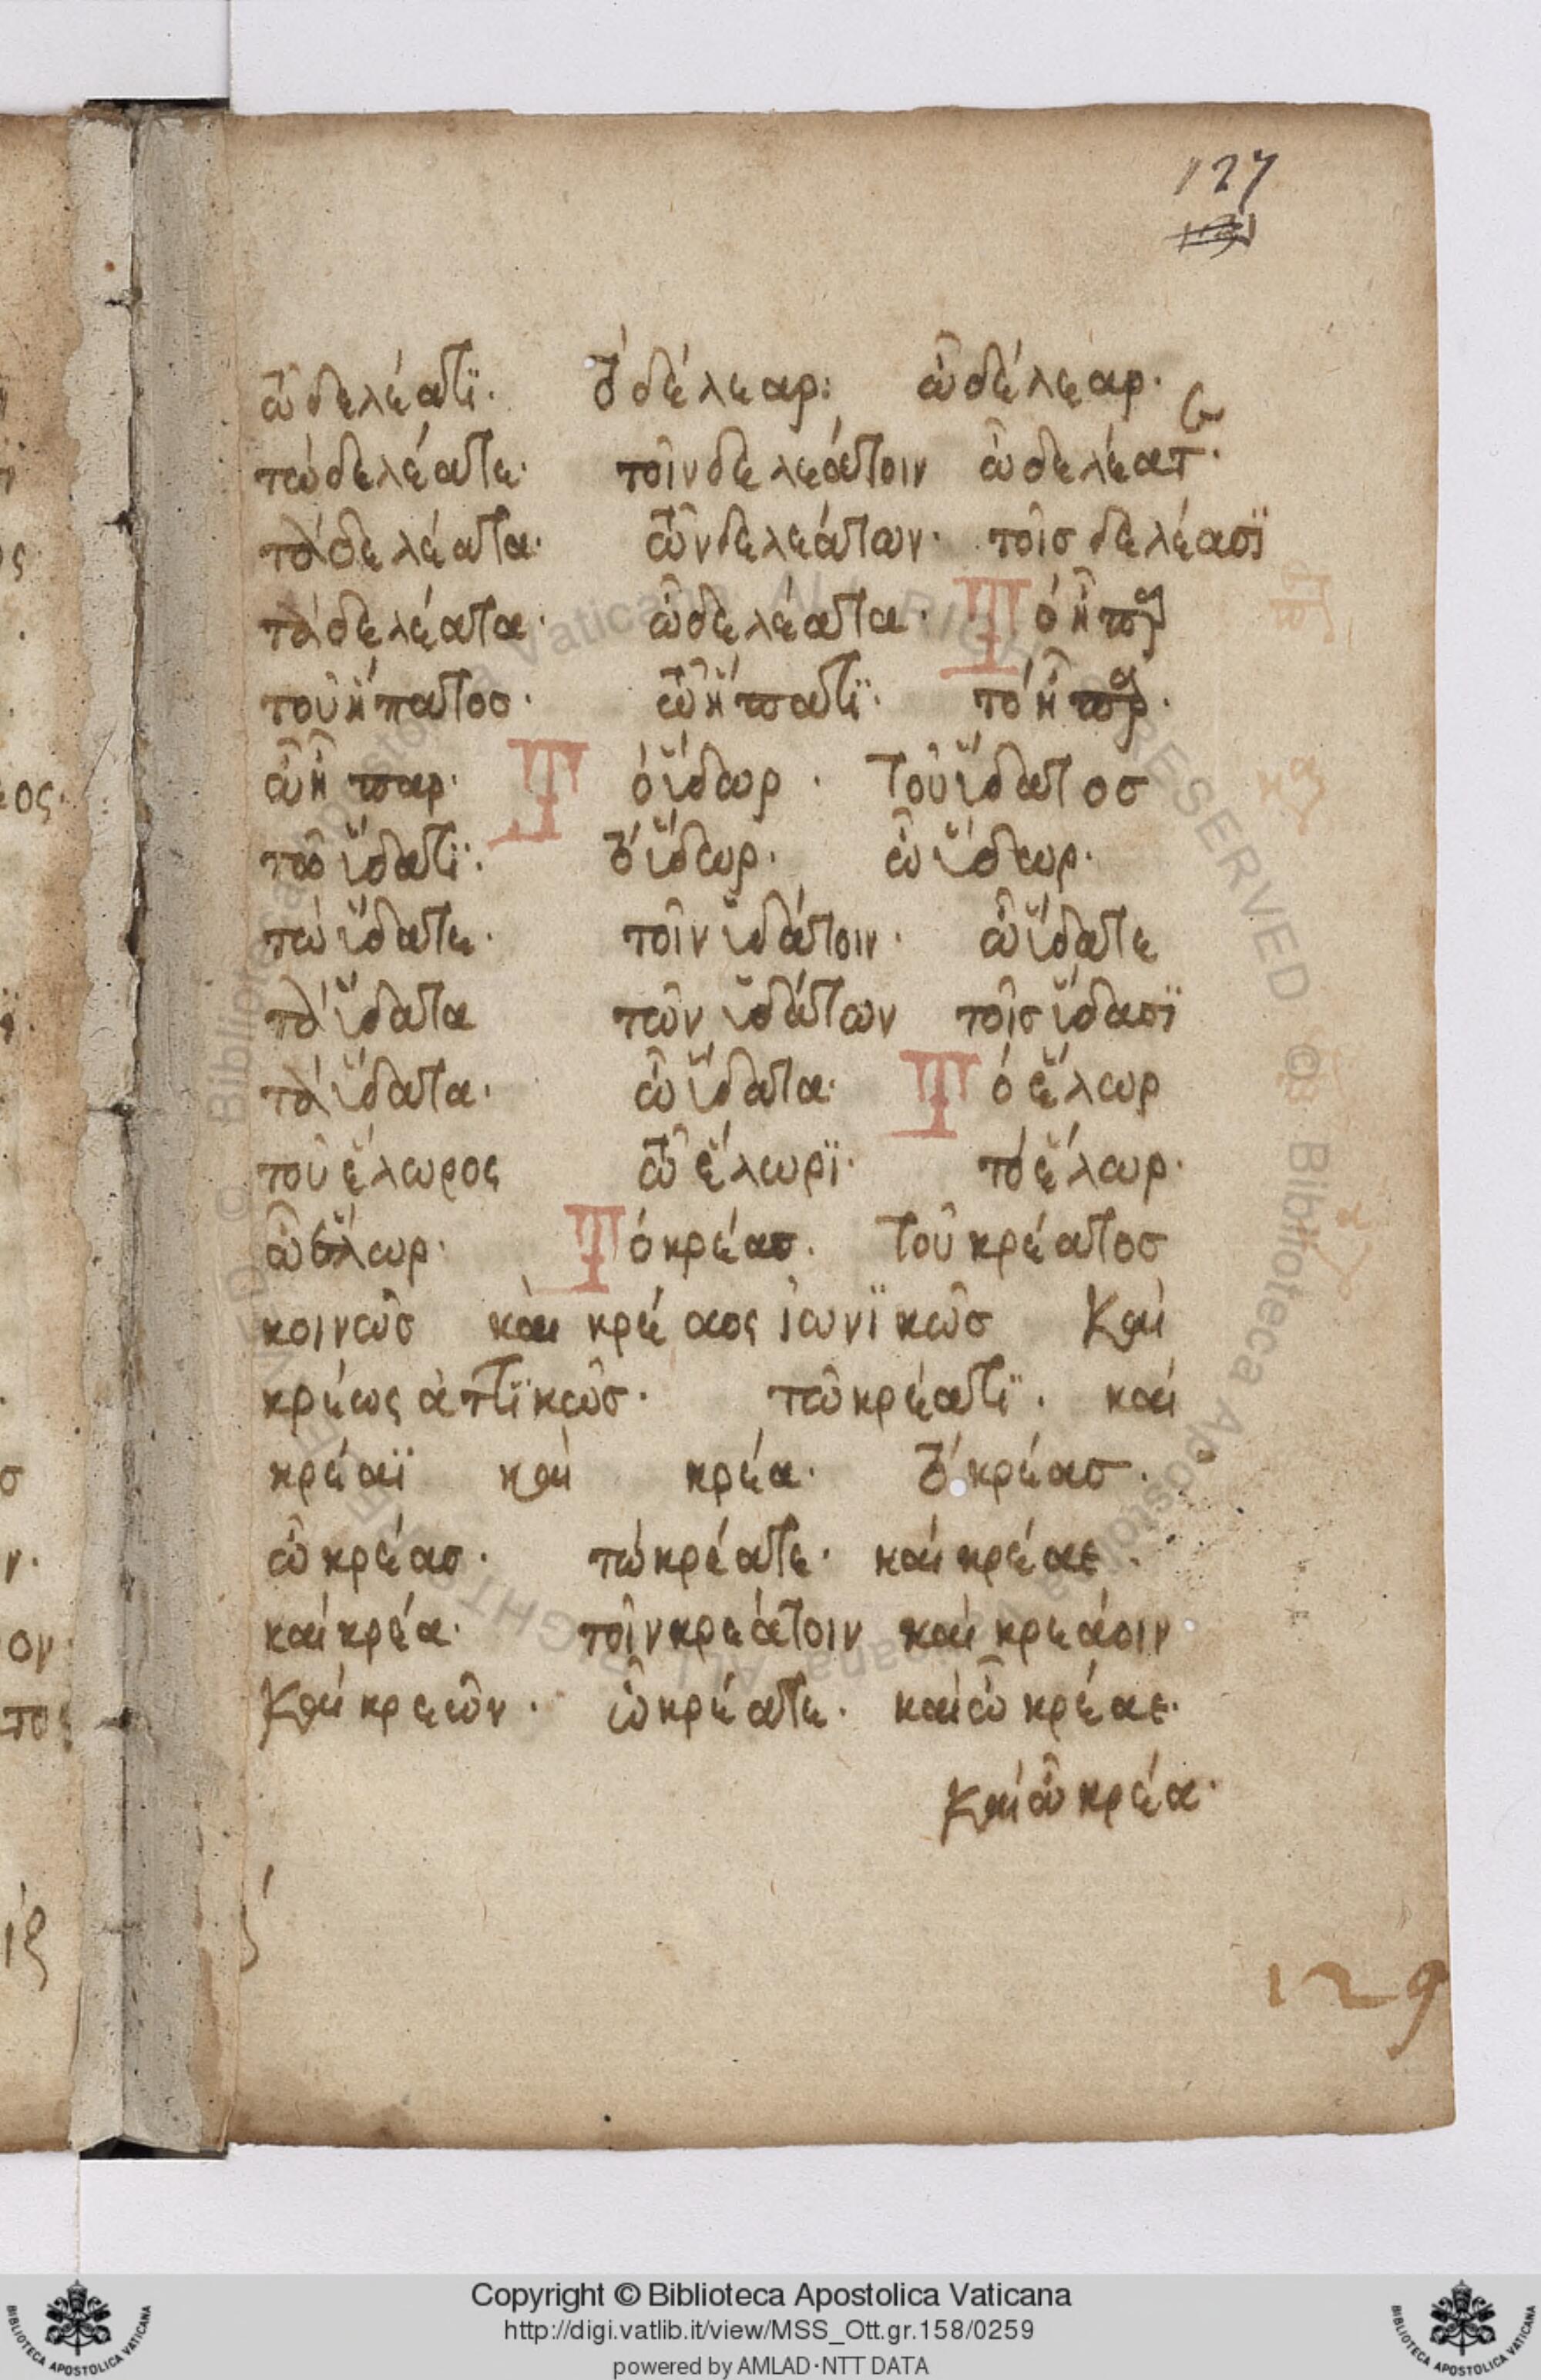 127
τῶ δελέατϊ. τὸ δέλεαρ: ὦ δέλεαρ.
τὼ δελέατε. τοῖν δελεάτοιν ὦ δελέατε.
τὰ δελέατα. τῶν δελεάτων. τοῖσ δελέασϊ
τὰ δελέατα. ὦ δελέατα. Τὸ ἧπαρ
τοῦ ἥπατοσ. τῶ ἥπατϊ. τὸ ἧπαρ.
ὦ ἧπαρ. Τὸ ὕδωρ. τοῦ ὕδατοσ
τῶ ὕδατϊ. τὸ ὕδωρ. ὦ ὕδωρ.
τὼ ὕδατε. τοῖν ὑδάτοιν. ὦ ὕδατε
τὰ ὕδατα τῶν ὑδάτων τοῖσ ὕδασϊ
τὰ ὕδατα. ὦ ὕδατα. Τὸ ἕλωρ
τοῦ ἕλωρος τῶ ἕλωρϊ. τὸ ἕλωρ.
ὦ ἕλωρ. Τὸ κρέασ. τοῦ κρέατοσ
κοινῶσ καὶ κρέαος ἰωνϊκῶσ καὶ
κρέως ἀττϊκῶσ. τῶ κρέατϊ. καὶ
κρέαϊ καὶ κρέα. τὸ κρέασ.
ὦ κρέασ. τὼ κρέατε. καὶ κρέαε.
καὶ κρέα. τοῖν κρεάτοιν καὶ κρεάοιν
καὶ κρεῶν. ὦ κρέατε. καὶ ὦ κρέαε.
καὶ ὦ κρέα.
129
Copyright © Biblioteca Apostolica Vaticana
http://digi.vatlib.it/view/MSS_Ott.gr.158/0259
powered by AMLAD·NTT DATA